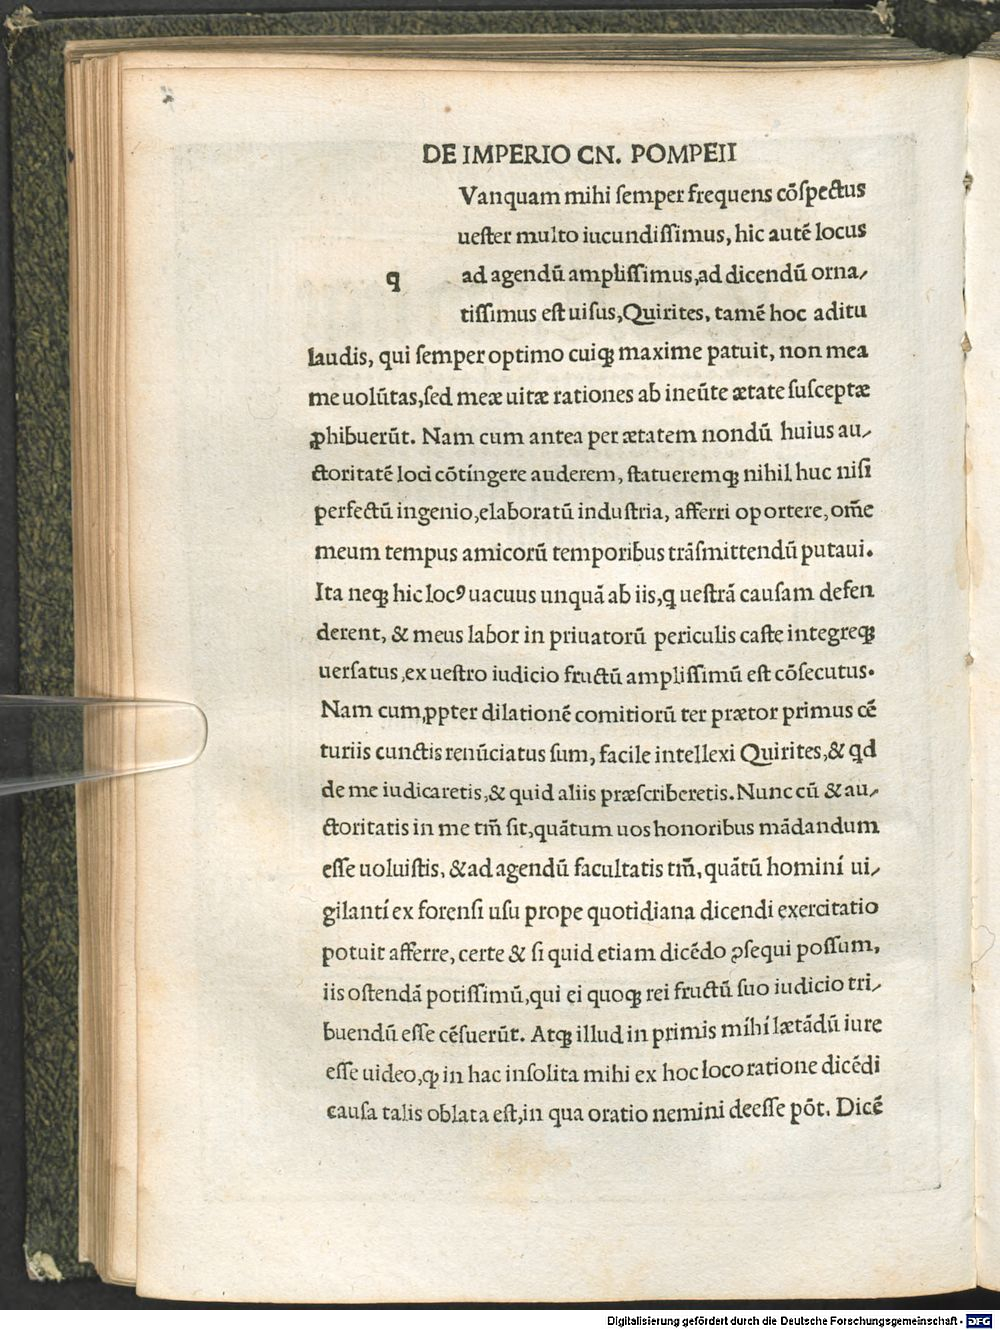 DE IMPERIO CN. POMPEII
Vanquam mihi ſemper frequens cõſpectus
ueſter multo iucundiſſimus, hic autẽ locus
q ad agendũ ampliſſimus,ad dicendũ orna⸗
tiſſimus eſt uiſus,Quirites, tamẽ hoc aditu
laudis, qui ſemper optimo cuiqꝫ maxime patuit, non mea
me uolũtas,ſed meæ uitæ rationes ab ineũte ætate ſuſceptæ
ꝓhibuerũt. Nam cum antea per ætatem nondũ huius au⸗
ctoritatẽ loci cõtingere auderem, ſtatueremqꝫ nihil huc niſi
perfectũ ingenio,elaboratũ induſtria, afferri oportere, om̃e
meum tempus amicorũ temporibus trãſmittendũ putaui.
Ita neqꝫ hic locꝰ uacuus unquã ab iis,q ueſtrã cauſam defen
derent, & meus labor in priuatorũ periculis caſte integreqꝫ
uerſatus,ex ueſtro iudicio fructũ ampliſſimũ eſt cõſecutus.
Nam cum,ꝓpter dilationẽ comitiorũ ter prætor primus cẽ
turiis cunctis renũciatus ſum, facile intellexi Quirites,& qd
de me iudicaretis,& quid aliis præſcriberetis.Nunc cũ & au⸗
ctoritatis in me tm̃ ſit,quãtum uos honoribus mãdandum
eſſe uoluiſtis, &ad agendũ facultatis tm̃,quãtũ hominí ui⸗
gilantí ex forenſi uſu prope quotidiana dicendi exercitatio
potuit afferre, certe & ſi quid etiam dicẽdo ꝯſequi poſſum,
iis oſtendã potiſſimũ,qui ei quoqꝫ rei fructũ ſuo iudicio tri⸗
buendũ eſſe cẽſuerũt. Atqꝫ illud in primis míhí lætãdũ iure
eſſe uideo,ꝙ in hac inſolita mihi ex hoc loco ratione dicẽdi
cauſa talis oblata eſt,in qua oratio nemini deeſſe põt. Dicẽ
Digitalisierung gefördert durch die Deutsche Forschungsgemeinschaft - DFG